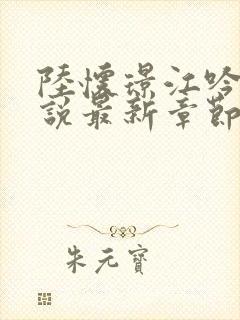 陸懷璟江吟
說最新章節
朱元寶